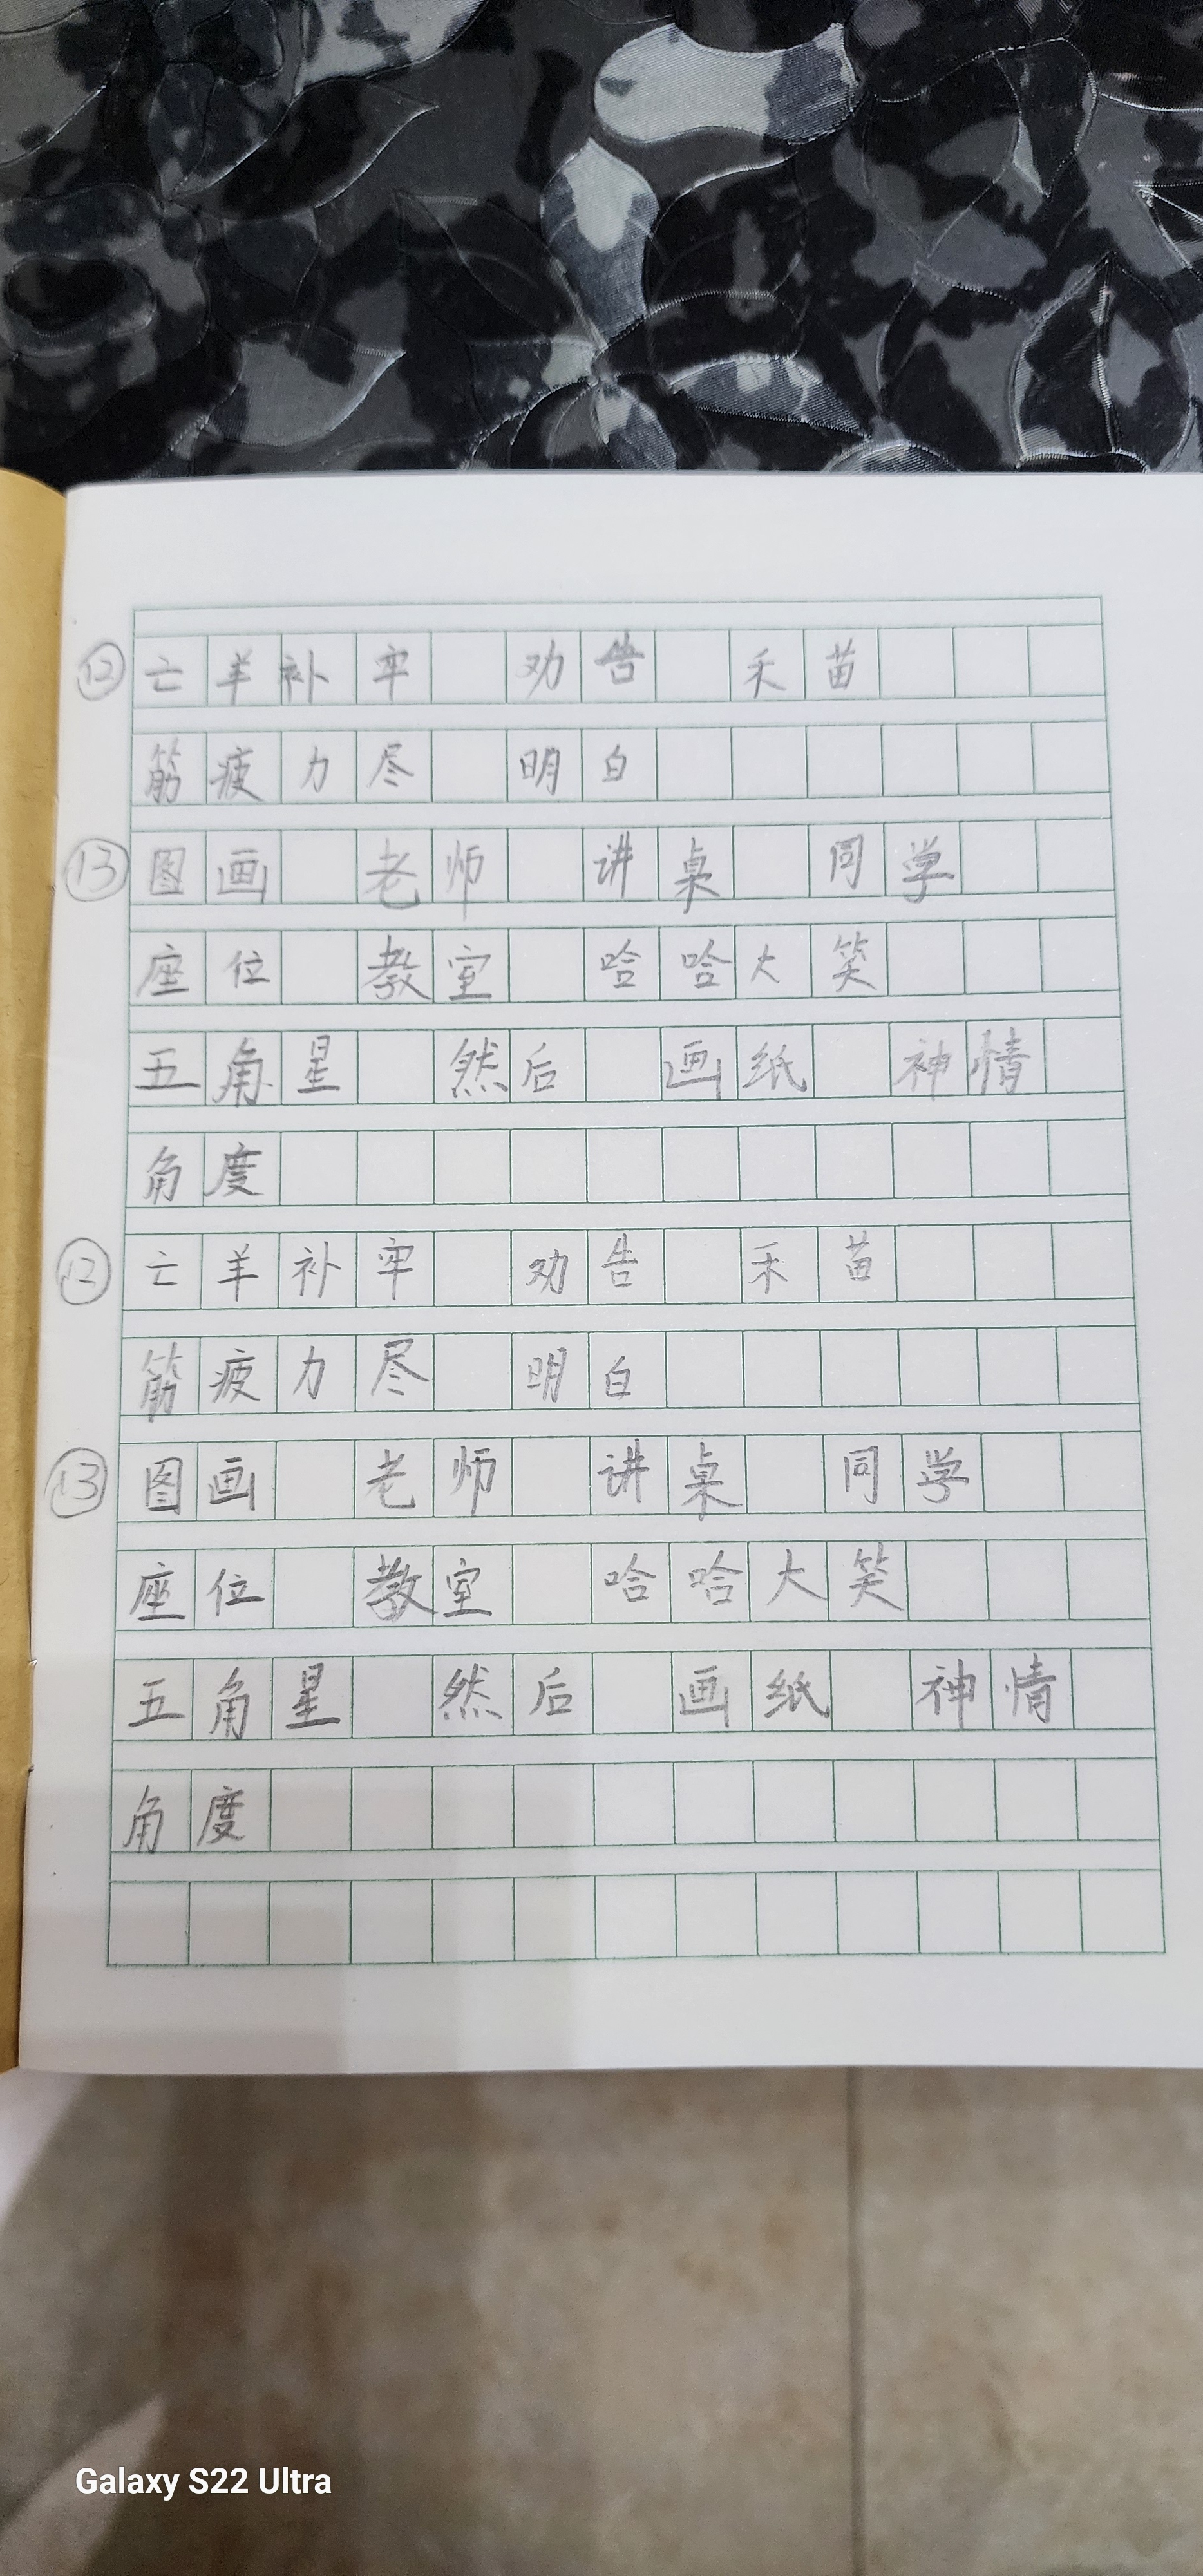 ⑫ 亡羊补牢 劝告 禾苗
筋疲力尽 明白
⑬ 图画 老师 讲桌 同学
座位 教室 哈哈大笑
五角星 然后 画纸 神情
角度
⑫ 亡羊补牢 劝告 禾苗
筋疲力尽 明白
⑬ 图画 老师 讲桌 同学
座位 教室 哈哈大笑
五角星 然后 画纸 神情
角度
Galaxy S22 Ultra